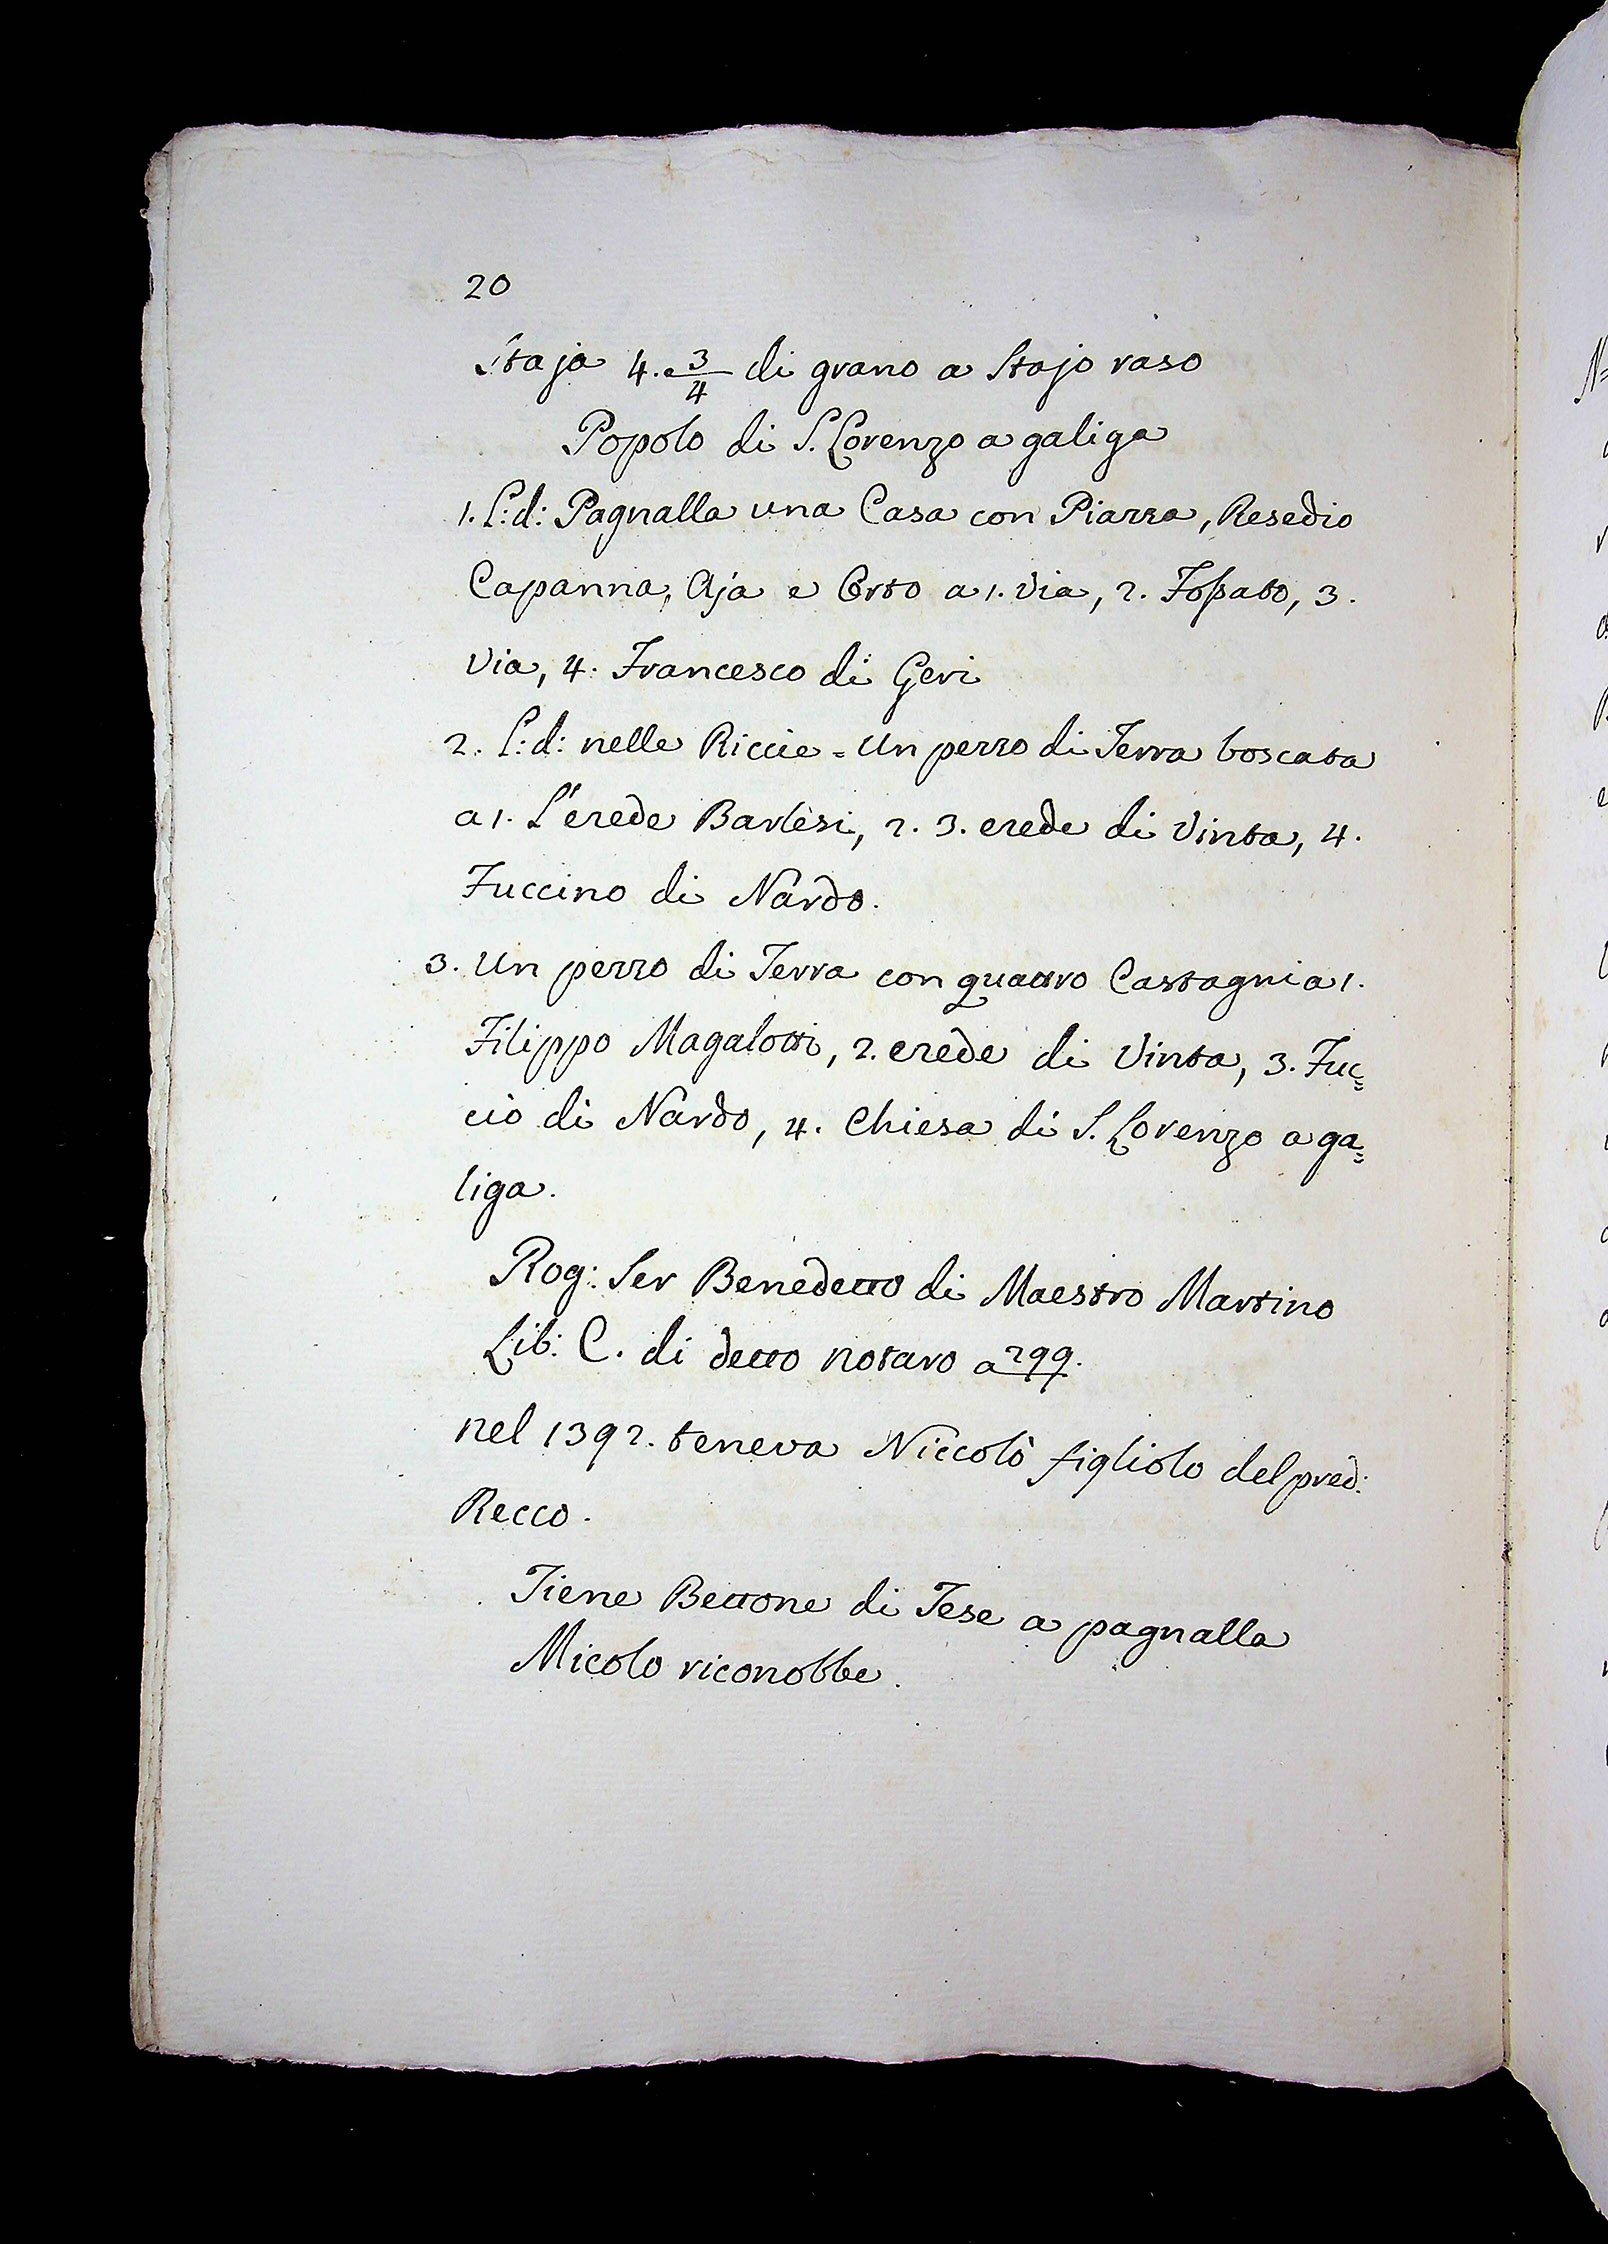 20
Staja 4. e 3/4 di grano a Stajo raso
Popolo di S. Lorenzo a galiga
1. L: d: Pagnalla una Casa con Piazza, Resedio
Capanna, Aja e Orto a 1. via, 2. Fossato, 3.
via, 4. Francesco di Geri
2. L: d: nelle Riccie = Un pezzo di Terra boscata
a 1. L'erede Barlesi, 2. 3. erede di Vinta, 4.
Fuccino di Nardo.
3. Un pezzo di Terra con quattro Castagni a 1.
Filippo Magalotti, 2. erede di Vinta, 3. Fuc=
cio di Nardo, 4. Chiesa di S. Lorenzo a ga=
liga.
Rog: Ser Benedetto di Maestro Martino
Lib: C. di detto notaro a 299.
nel 1392. teneva Niccolò figliolo del pred:
Recco.
Tiene Bettone di Tese a pagnalla
Micolo riconobbe.